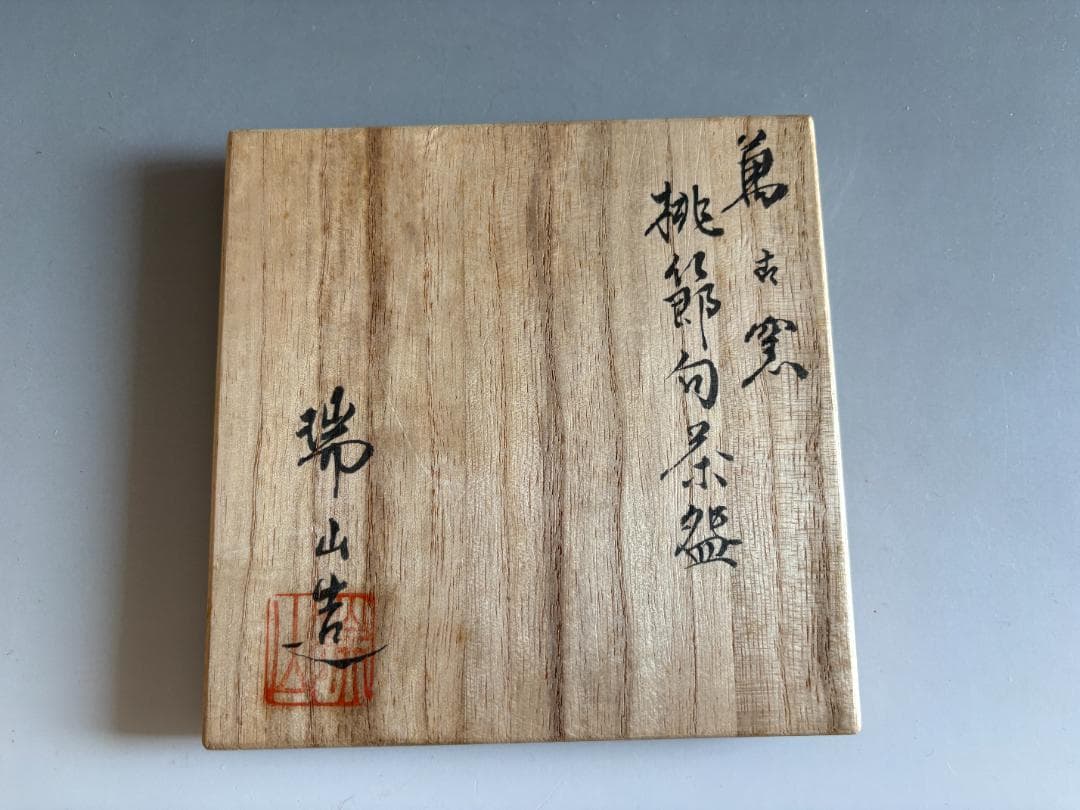 萬古窯
桃節句茶盌
瑞山造